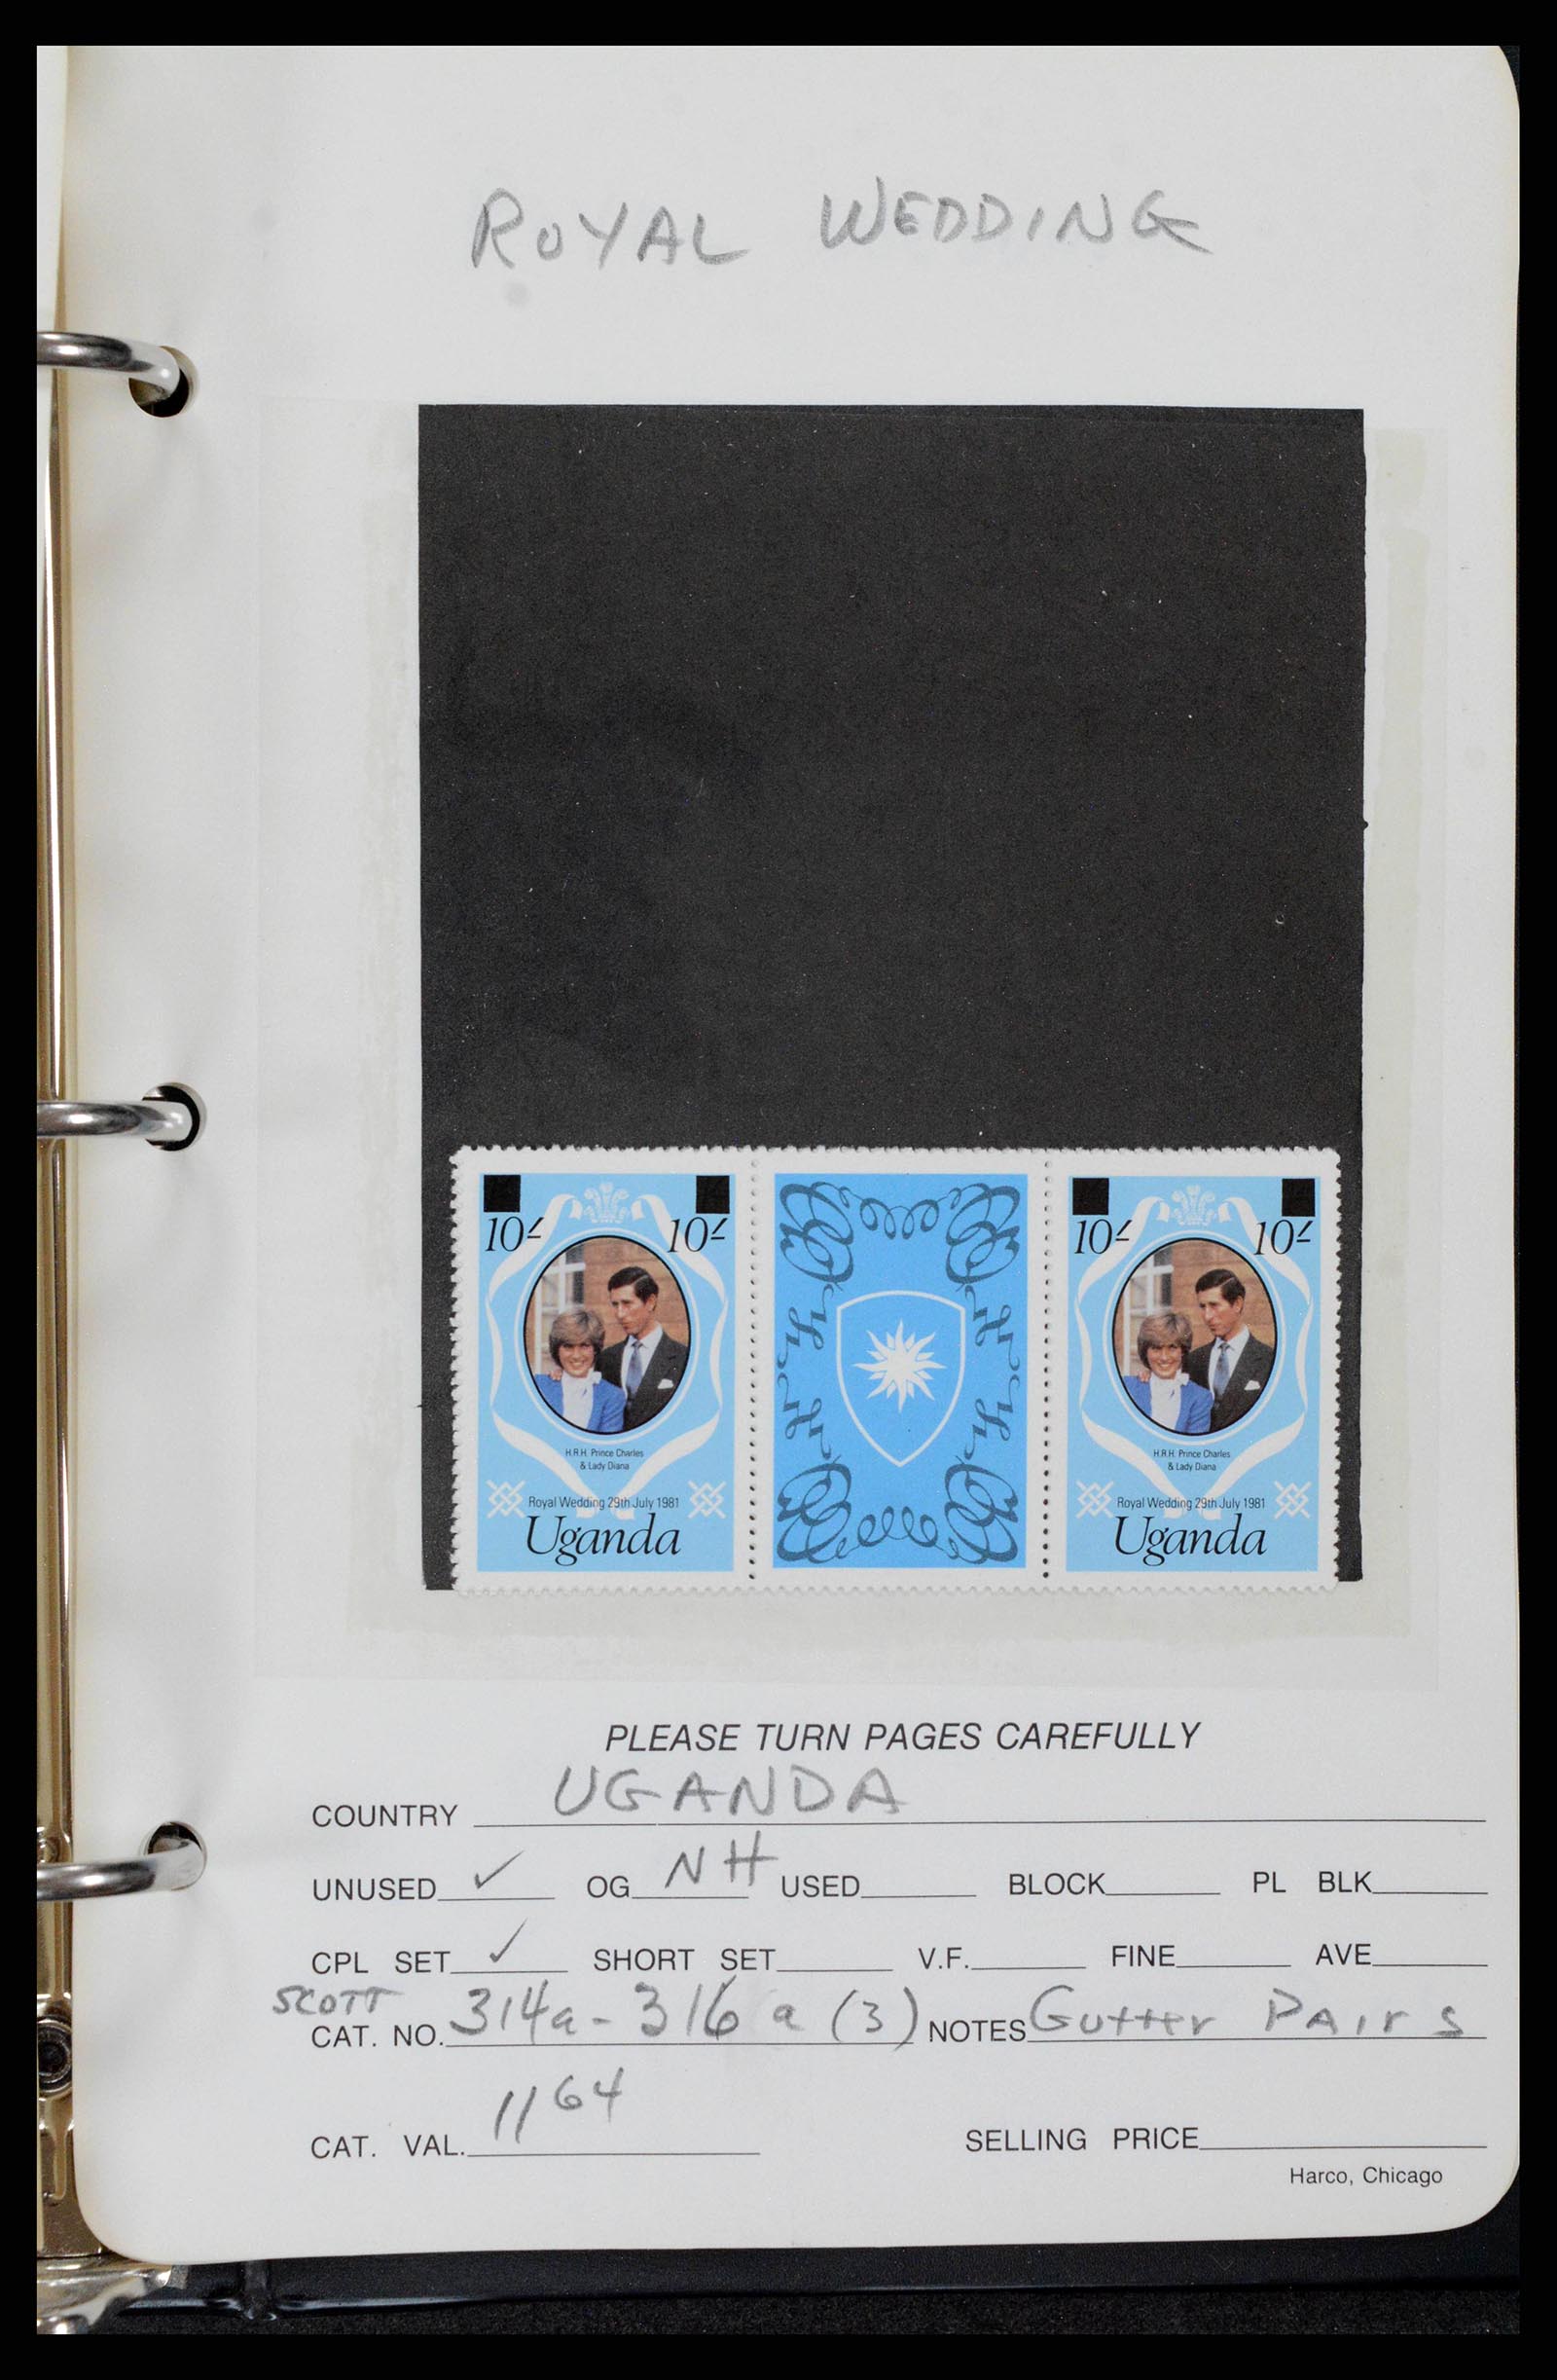 ROYAL WEDDING
10/- 10/- 10/- 10/-
H.R.H. Prince Charles H.R.H. Prince Charles
& Lady Diana & Lady Diana
Royal Wedding 29th July 1981 Royal Wedding 29th July 1981
Uganda Uganda
PLEASE TURN PAGES CAREFULLY
COUNTRY UGANDA
UNUSED ✓ OG NH USED BLOCK PL BLK
CPL SET ✓ SHORT SET V.F. FINE AVE
SCOTT
CAT. NO. 314a-316a (3) NOTES Gutter PAIrS
CAT. VAL. 11 64 SELLING PRICE
Harco, Chicago